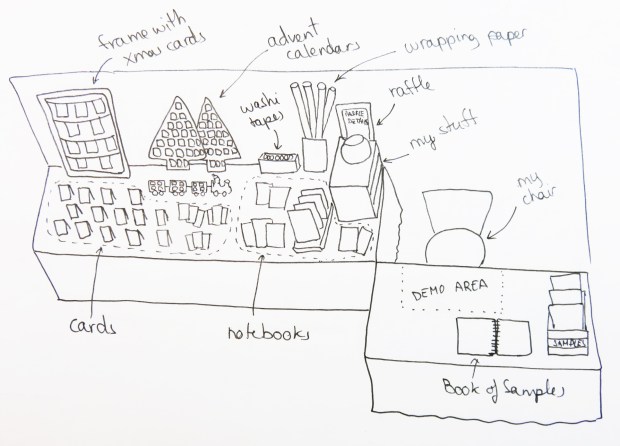 frame with
xmas cards
advent
calendars
wrapping paper
washi
tapes
raffle
my stuff
my
chair
DEMO AREA
SAMPLES
cards
notebooks
Book of Samples